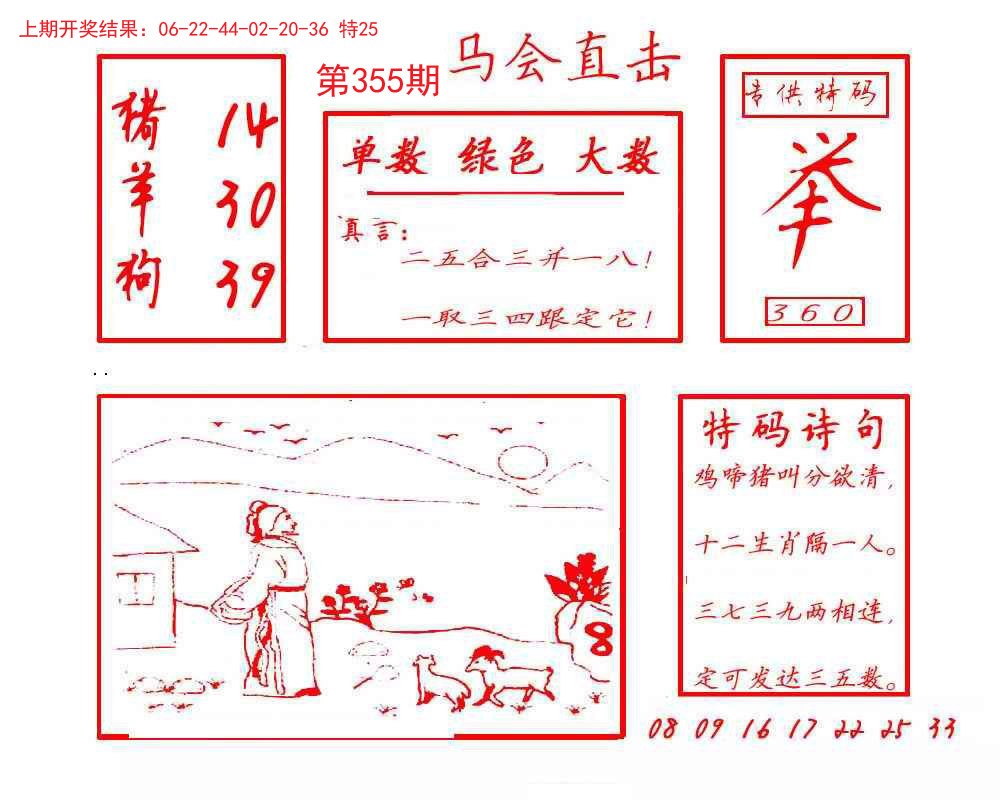 上期开奖结果：06-22-44-02-20-36 特25
马会直击
第355期
猪 14
羊 30
狗 39
单数 绿色 大数
真言：
二五合三并一八！
一取三四跟定它！
专供特码
举
360
特码诗句
鸡啼猪叫分欲清，
十二生肖隔一人。
三七三九两相连，
定可发达三五数。
8
08 09 16 17 22 25 33